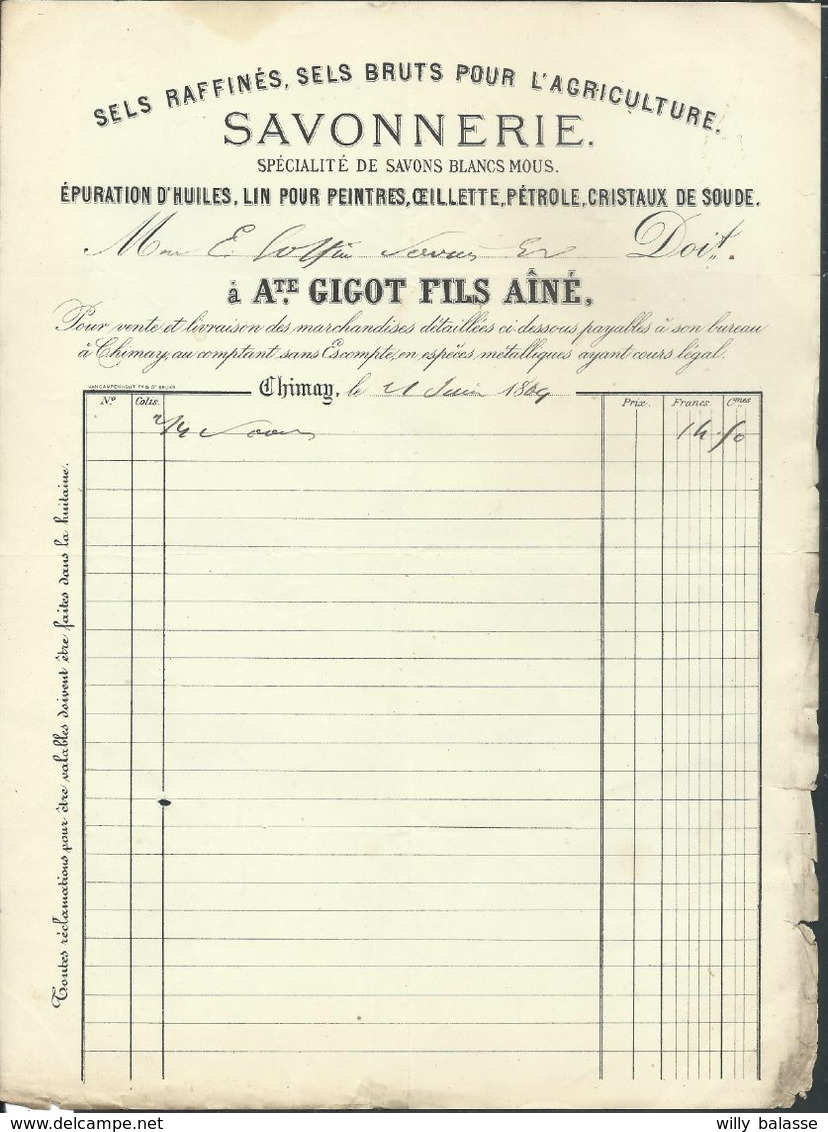 SELS RAFFINÉS, SELS BRUTS POUR L'AGRICULTURE.
SAVONNERIE.
SPÉCIALITÉ DE SAVONS BLANCS MOUS.
ÉPURATION D'HUILES, LIN POUR PEINTRES, ŒILLETTE, PÉTROLE, CRISTAUX DE SOUDE.
M E. Doit
à ATE. GIGOT FILS AÎNÉ,
Pour vente et livraison des marchandises détaillées ci-dessous payables à son bureau
à Chimay, au comptant sans Escompte, en espèces métalliques ayant cours légal.
Chimay, le 21 Juin
No Colis. Prix. Francs Cmes
14 50
Toutes réclamations pour être valables doivent être faites dans la huitaine.
willy balasse